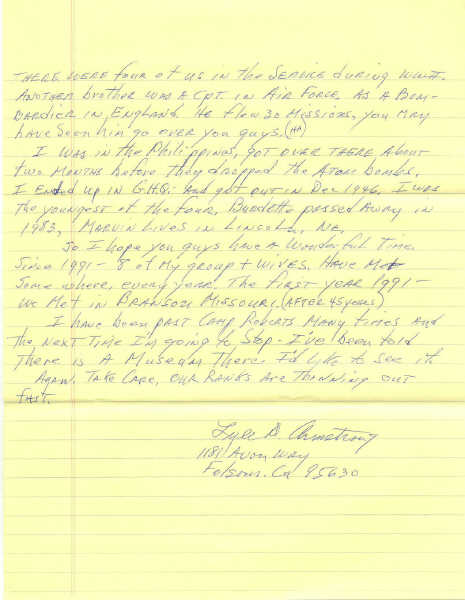 THERE WERE four of us in the SERVICE during WWII.
ANOTHER brother WAS A CPT. in AIR FORCE. AS A BOM-
BARDIER in ENGLAND. He flew 30 Missions, you MAY
have seen him go over you guys. (HA)
I WAS in the Philippines, GOT OVER THERE About
two MONTHS before they dropped the Atom bombs.
I Ended UP IN G.H.Q. And got out in Dec 1946. I WAS
the youngest of the four. Burdette passed Away in
1983, MARVIN Lives in Lincoln, Ne.
So I hope you guys have A Wonderful Time.
Since 1991 - 8 of My group + WIVES. HAVE Met
Some where, every year. The first year 1991 -
we Met in BRANSON MISSOURI. (AFTER 45 years)
I have been PAST CAMP Roberts MANY times AND
the NEXT Time I'm going to Stop - I've been told
There is A Museum There. I'd like to see it.
AGAIN. TAKE CARE, OUR RANKS ARE THINNING OUT
fast.
Lyle B. Armstrong
1181 AVON WAY
Folsom. Ca 95630